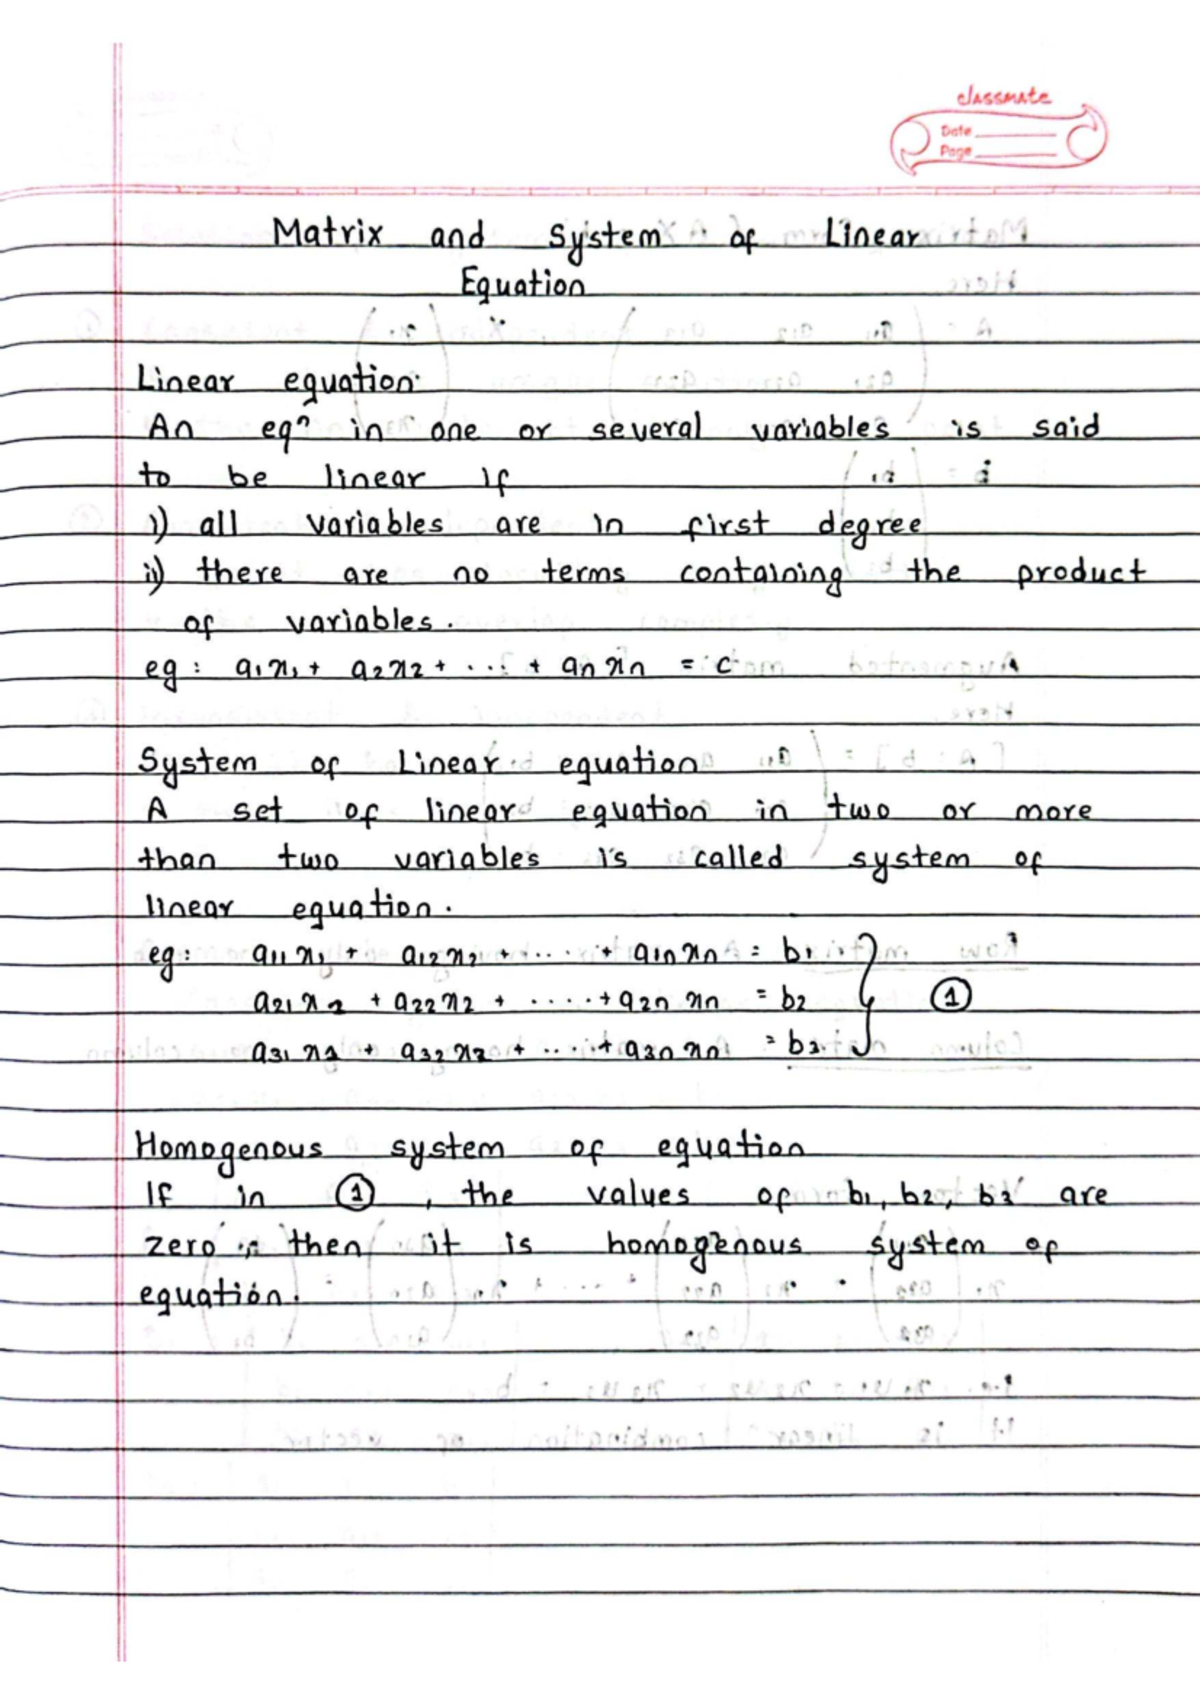 classmate
Date
Page
Matrix and System of Linear
Equation
Linear equation
An eqn in one or several variables is said
to be linear if
i) all variables are in first degree
ii) there are no terms containing the product
of variables.
eg: a1x1 + a2x2 + ... + an xn = c
System of Linear equation
A set of linear equation in two or more
than two variables is called system of
linear equation.
eg: a11 x1 + a12 x2 + .... + a1n xn = b1
a21 x2 + a22 x2 + ..... + a2n xn = b2 ①
a31 x3 + a32 x3 + .... + a3n xn = b3
Homogenous system of equation
If in ①, the values of b1, b2, b3 are
zero, then it is homogenous system of
equation.